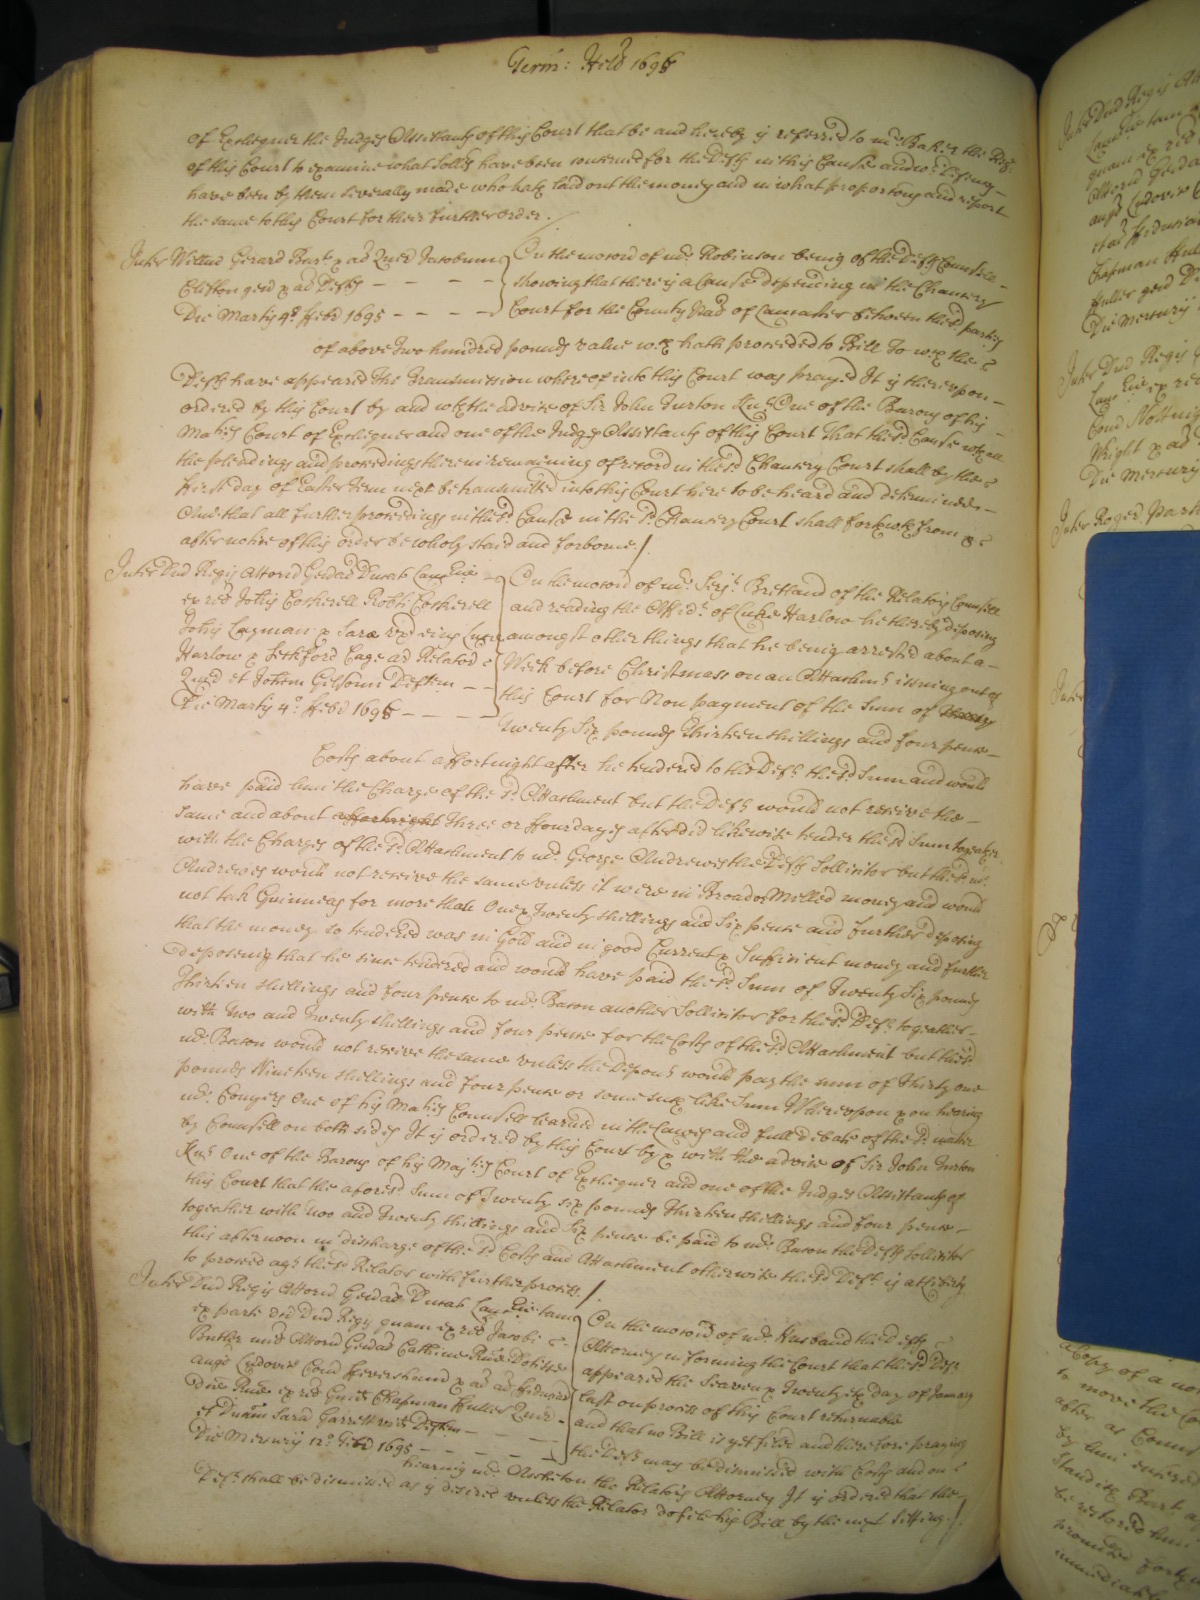 Term: Hill 1695
of Exchequer the Judges Assistants of this Court that be and hereby is referred to mr. Baker the
of this Court to examine what sollrs have been concerned for the Defts in this Cause and wt.
have been by them severally made who hath laid out the money and in what proportons and report
the same to this Court for their further order./
Inter Willum Gerard Bart. x ad Quer Jacobum
Clifton gen x ad Defts
Die Martis 4o. Feb 1695
On the motion of mr. Robinson being of the Defts Counsell
showing that there is a Cause depending in the Chancery
Court for the County of Lancaster between the sd. partys
of above two hundred pounds value wch hath proceeded to Bill To wch the
Defts have appeared The Transmission whereof into this Court was prayed It is thereupon
ordered by this Court by and wth the advice of Sir John Turton Knt One of the Barons of his
Maties Court of Exchequer and one of the Judges Assistants of this Court That the sd Cause wth all
the pleadings and proceedings therein remaining of record in the sd. Chancery Court shall by the
first day of Easter Term next be transmitted into this Court here to be heard and determined
And that all further proceedings in the sd. Cause in the sd. Chancery Court shall forthwith from &
after notice of this order be wholy staid and forborne./.
Inter Dnd Regis Attorn Gerad Ducat Lanc
ex rel Johis Cockerell Robti Cockerell
Johis Layman x Sara ux eius Luce
Harlow x Ad Relator
Quer et Johem Gibson Deftem
Die Martis 4o. Feb 1695
On the motion of mr. Serjt. Bretland of the Relators Counsell
and reading the Affidt. of Luke Harlow he thereby deposing
amongst other things that he being arrested about a
Week before Christmass on an Attachmt issuing out of
this Court for Non payment of the Sum of
Twenty Six pounds Thirteen shillings and four pence
Costs about a ffortnight after he tendered to the Deft. the sd Sum and would
have paid him the Charge of the sd. Attachment but the Deft would not receive the
same and about a ffortnight Three or ffour dayes after did likewise tender the sd Sum together
with the Charges of the sd. Attachment to mr. George Andrewes the Defts Sollicitor but the sd. mr.
Andrewes would not receive the same unless it were in Broad or Milled money and would
not take Guinneas for more than One x Twenty shillings and Six pence and further deposing
that the money so tendered was in Gold and in good Current x Sufficient money and further
deposeing that he since tendered and would have paid the sd. Sum of Twenty Six pounds
Thirteen shillings and four pence to mr. Bacon another Sollicitor for the sd Deft. togeather
with two and Twenty shillings and four pence for the Costs of the sd Attachment but the sd.
mr. Bacon would not receive the same unless the Depont would pay the sum of Thirty one
pounds Nineteen shillings and four pence or some such like Sum Whereupon x on hearing
mr. Conyers One of his Maties Counsell learned in the Lawes and full debate of the sd. matter
by Counsell on both sides It is ordered by this Court by x with the advice of Sir John Turton
Knt One of the Barons of his Majties Court of Exchequer and one of the Judges Assistants of
this Court that the aforesd Sum of Twenty six pounds Thirteen shillings and four pence
together with two and Twenty shillings and Six pence be paid to mr. Bacon the Defts sollicitor
this afternoon in discharge of the sd. Costs and Attachment otherwise the sd Deft. is att liberty
to proceed agt the sd Relator with further process./.
Inter Dnd Regis Attorn Gerad Ducat Lanc tam
ex parte dci Dnd Regis quam ex rel Jacobi
Butler Attorn Gerad Catherine
Ludovic Com Feversham x ad
ex rel Chapman Fuller Quer
et Sara Garrett Deftem
Die Mercurij 12o. Feb 1695
On the motion of mr. Husband the Defts
Attorney informing the Court that the sd Deft.
appeared the Seaven x Twentyeth day of January
last on process of this Court returnable
and that no Bill is yet filed and therefore praying
the Deft may be dismissed with Costs and on
hearing mr. the Relators Attorney It is ordered that the
Deft shall be dismissed as is desired unless the Relator do file his Bill by the next sitting./.